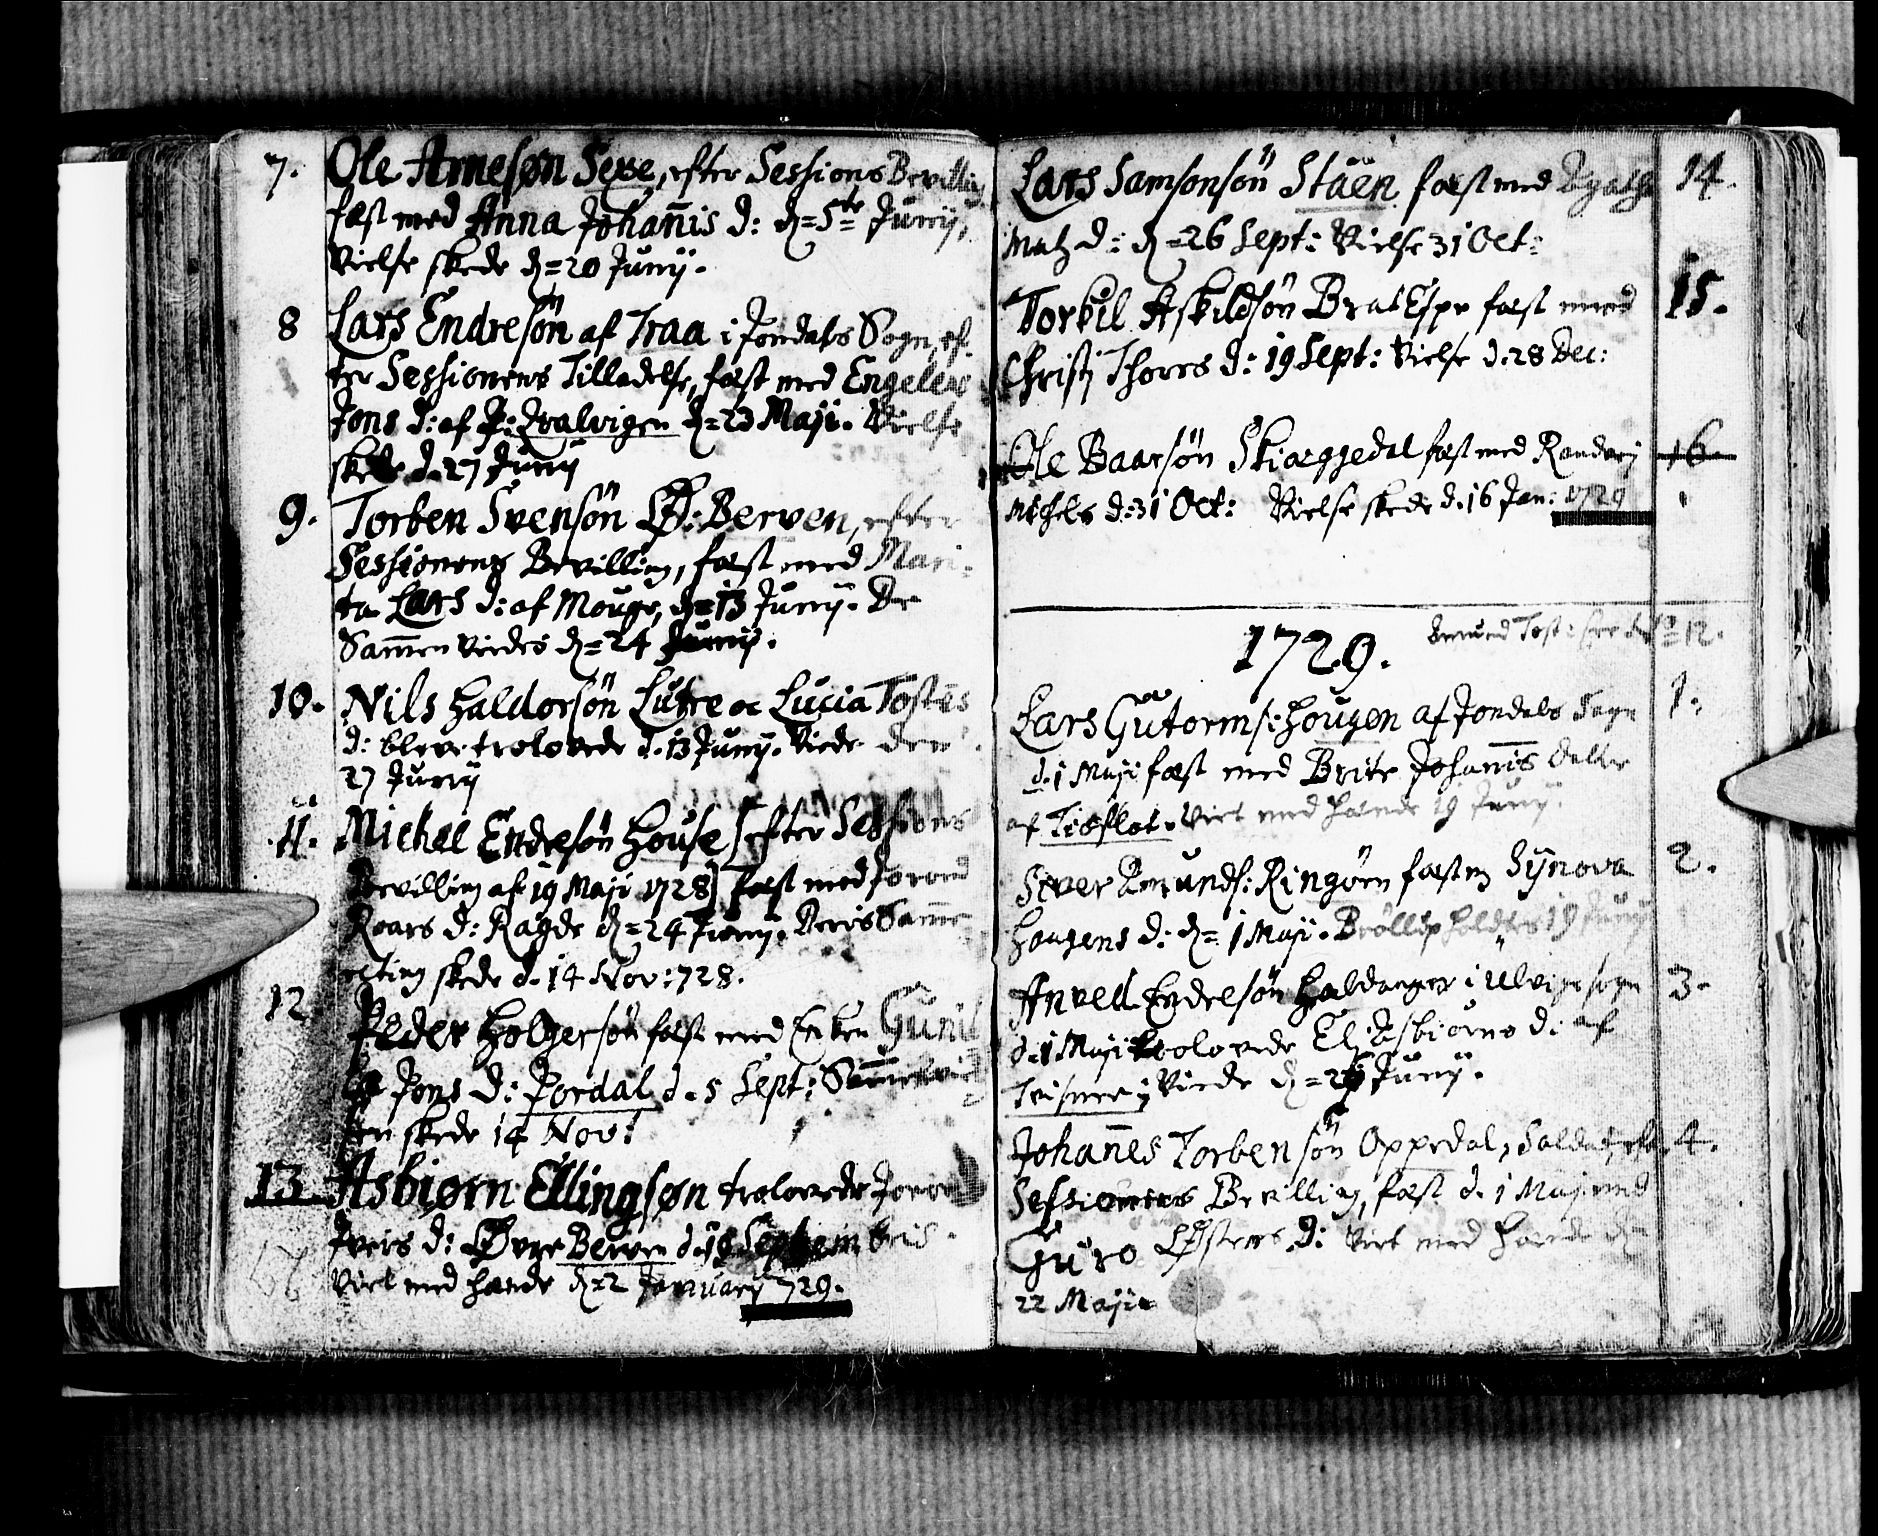 7. Ole Arnesøn Sexe, efter Sessions Bevilling
fæst med Anna Johañis d: d=5te Junij,
Vielse skede d=20 Junij.
8 Lars Endresøn af Traa i Jondals Sogn, ef-
ter Sessionens Tilladelse, fæst med Engelens
Jons d: af P: Qvalvigen d=23 Maji. Vielse
skede d. 27 Junij
9. Torben Svensøn LØ: Berven, efter
Sessionens Bevilling, fæst med Mari-
ta Lars d: af Mouge, d=13 Junij. De
Sam̄en viedes d=24 Junij.
10. Nils Haldorsøn Lutre oc Lucia Tostes
d: bleve trolovede d. 13 Junij. Viede den
27 Junij
11. Michel Endresøn House [efter Sessions
Bevilling af 19 Maji 1728] fæst med
Roars d: Ragde d=24 Junij. Deris Sam̄e
skede d. 14 Nov: 728.
12 Peder Holgersøn fæst med Enken Gunil
Jons d: Jordal d. 5 Sept:
skede 14 Nov:
13 Asbiørn Ellingsøn trolovede
Ivers d: Øvre Berven d. 18 Septembris.
Viet med hænde d=2 January 729.
Lars Samsonsøn Stäen fæst med Agathe 14.
Matz d: d=26 Sept: Vielse 31 Oct:
Torkil Askildsøn BratEspe fæst med 15.
Christj Thores d: 19 Sept: Vielse d. 28 Dec:
Ole Baarsøn Skiæggedal fæst med Randvej 16.
Michels d: 31 Oct: Vielse skede d. 16 Jan: 1729
1729. Amund Tost: see No 12.
Lars Gutorms: Hougen af Jondals Sogn 1.
d. 1 Maji fæst med Brite Johañis datter
af Tioflot. Viet med hænde 19 Junij.
Siver Amunds: Ringøen fæst m Synova 2.
Hougens d: d= 1 Maji. Brøllup holdtes 19 Junij
Anved Endresøn Haldanger i Ulvigs sogn 3.
d. 1 Maji trolovede El: Asbiørns d: af
Teisnes; Viede d=26 Junij.
Johañes Torbensøn Oppedal, Soldat, 4.
Sessionens Bevilling, fæst d. 1 Maji med
Guro d: Viet med hænde d=
22 Maji